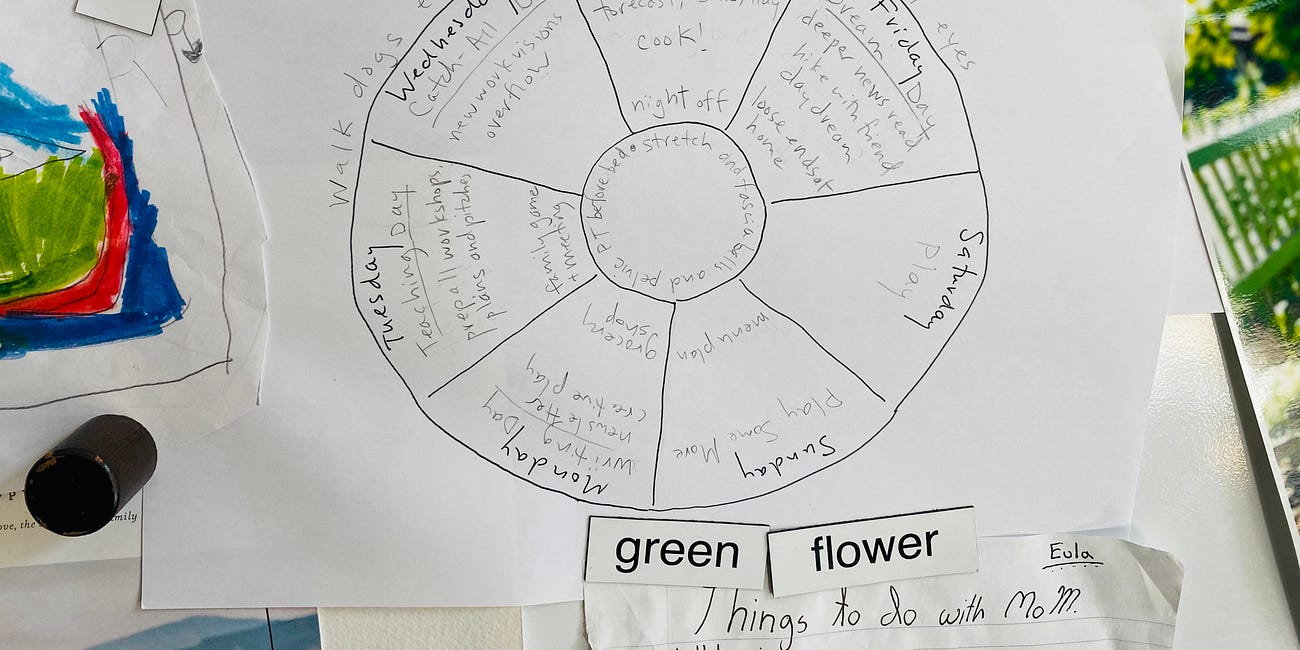 Walk dogs
eyes
Wednesday
Catch-All
new work visions
overflow
forecast,
cook!
night off
Friday
Dream Day
deeper news read
hike with friend
day dream
loose ends at
home
Saturday
Play
Sunday
Play
Some More
menu plan
Monday
Writing Day
newsletter
creative play
grocery
shop
Tuesday
Teaching Day
Prep all workshops,
plans and pitches
family game
+ meeting
stretch and fascia balls and pelvic PT before bed
R
green
flower
Eula
Things to do with MoM.